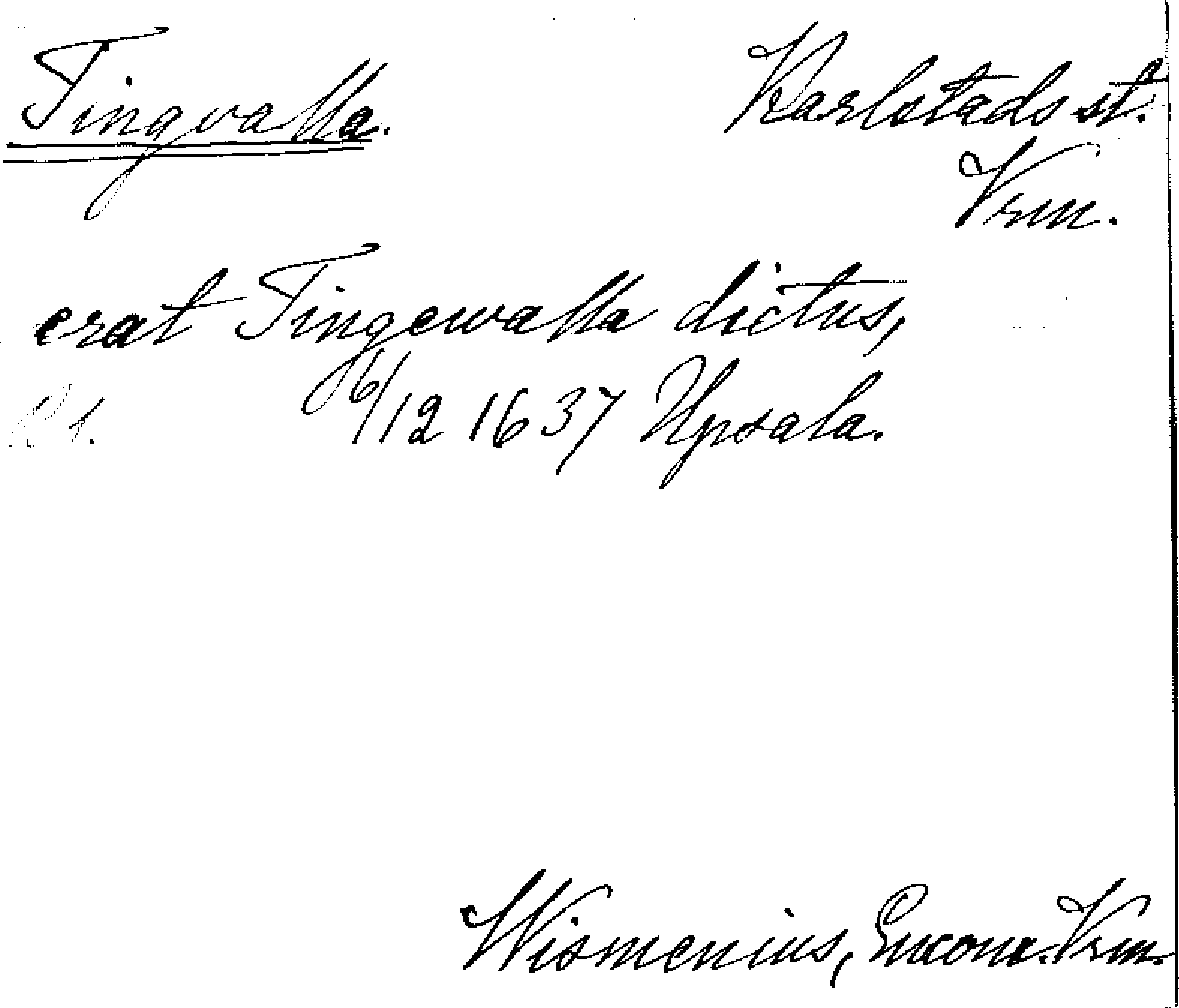 Tingvalla.
Karlstads st.
Vrm.
erat Tingewalla dictus,
R1. 6/12 1637 Upsala.
Wismenius, Encom. Vrm.